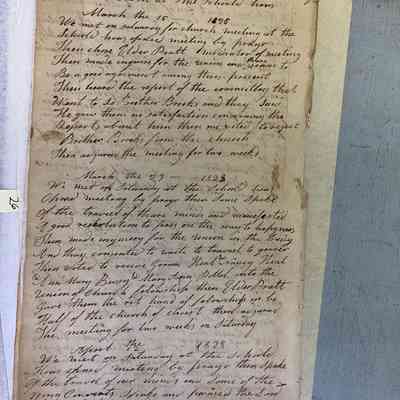 March the 15 1828
We met on saturday for church meeting at the
Schoole hous opened meeting by prayer
Then chose Elder Pratt moderator of meeting
Then made inquirey for the union and
Be a good agreement among them present
Then heard the report of the committee that
Went to se Brother Brooks and they Saw
He gave them no satisfaction concerning the
Reports about him then we voted to reject
Brother Brooks from the church
Then adjurned the meeting for two weeks
March the 29 1828
We met on Saturday at the School hous
Opned meeting by prayer then Some Spoke
Of the travel of thare minds and manifested
A good resolution to press on the way to happyness
Then made inquirey for the union in the Body
And thay consented to walk to travel to geather
Then voted to receive
And Mary into the
Union of Church fellowship then Elder Pratt
Gave Them the rit hand of felowship in be
Half of the church of christ then adjurned
The meeting for two weeks on Saturday
the 1828
We met on Saturday at the Schoole
Hous opned meeting by prayer then Spoke
Of the travel of our minds and Some of the
Young Converts Spoke and praised the Lord
26